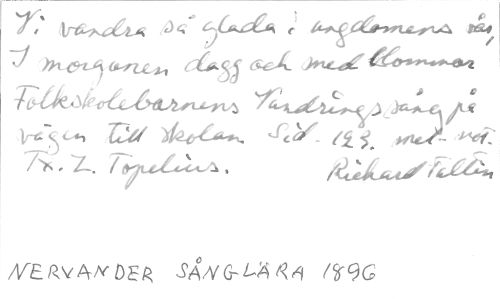 Vi vandra så glada i ungdomens vår,
I morgonen dagg och med blommor
Folkskolebarnens Vandringssång på
vägen till skolan. Sid. 123. met. not.
Tx. Z. Topelius. Richard Faltin
NERVANDER SÅNGLÄRA 1896